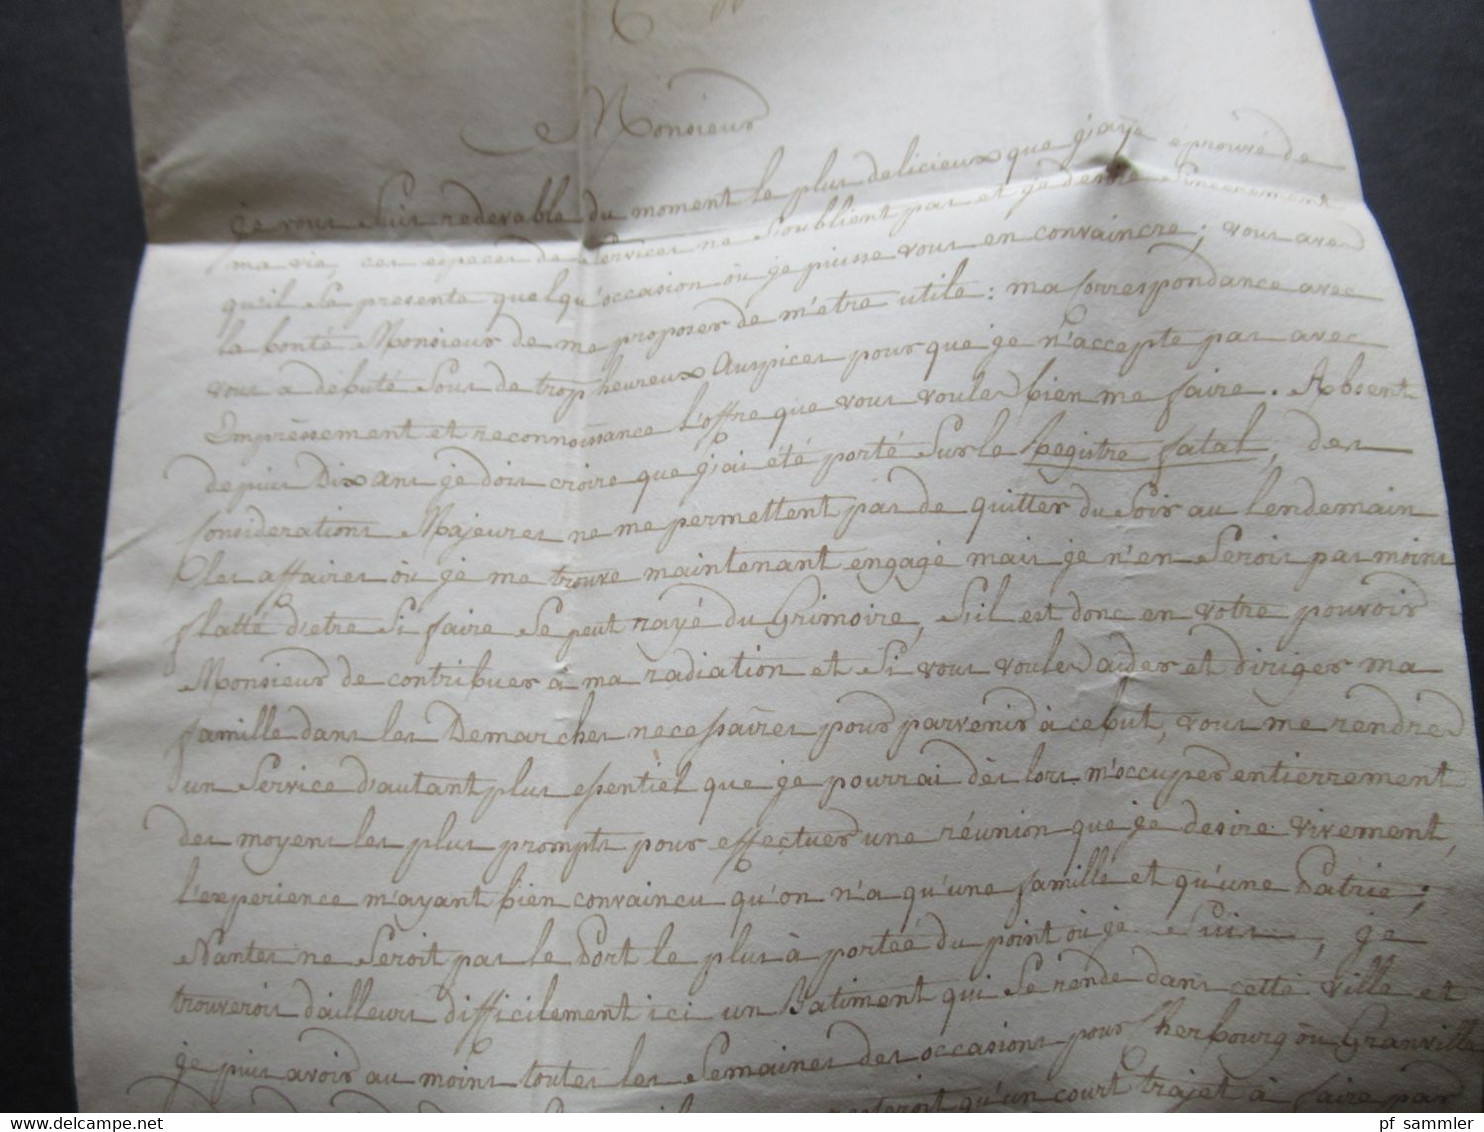 Monsieur
je vous suis redevable du moment le plus delicieux que j'aye eprouvé de
ma vie, ces especes de services ne s'oublient pas et je desire sincerement
qu'il se presente quelqu'occasion où je puisse vous en convaincre; vous avez
la bonté Monsieur de me proposer de m'etre utile: ma correspondance avec
vous a débuté sous de trop heureux Auspices pour que je n'accepte pas avec
Empréssement et reconnoissance l'offre que vous voulez bien me faire. Absent
depuis Dix ans je dois croire que j'ai été porté sur le Registre fatal, des
Considerations Majeures ne me permettent pas de quitter du soir au lendemain
les affaires où je me trouve maintenant engagé mais je n'en serois pas moins
flatté d'etre si faire se peut rayé du Grimoire, s'il est donc en votre pouvoir
Monsieur de contribuer à ma radiation et si vous voulez aider et diriger ma
famille dans les Demarches necessaires pour parvenir à ce but, vous me rendrez
un service d'autant plus essentiel que je pourrai dès lors m'occuper entierrement
des moyens les plus prompts pour effectuer une réunion que je desire vivement,
l'experience m'ayant bien convaincu qu'on n'a qu'une famille et qu'une Patrie;
Nantes ne seroit pas le Port le plus à portée du point où je suis, je
trouverois d'ailleurs difficilement ici un Batiment qui se rende dans cette ville et
je puis avoir au moins toutes les semaines des occasions pour Cherbourg où Granville
resteroit qu'un court trajet à faire par
pf_sammler